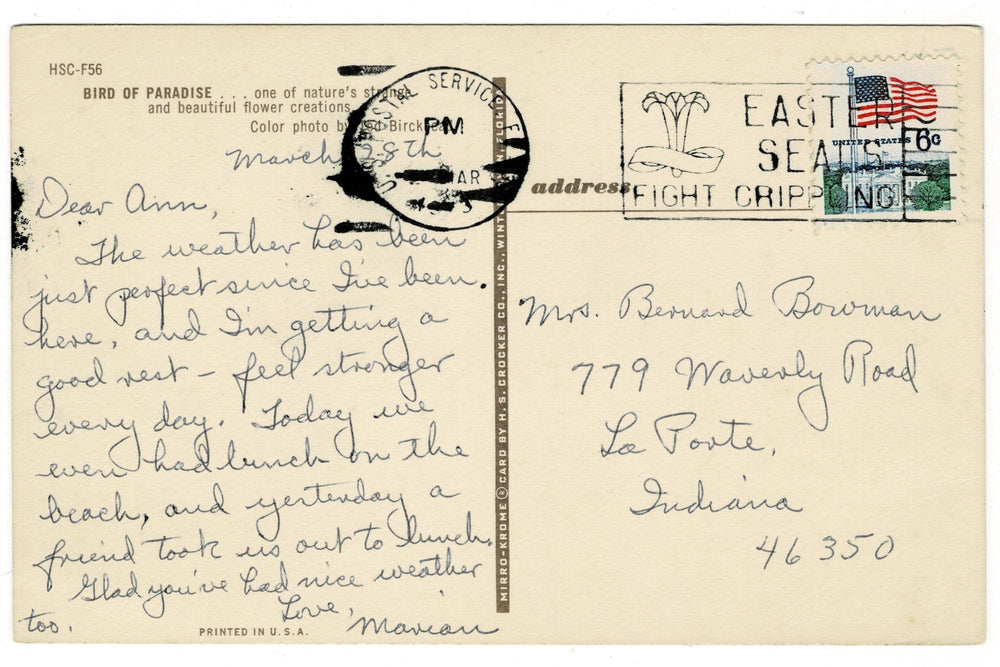 HSC-F56
BIRD OF PARADISE . . . one of nature's strange
and beautiful flower creations.
Color photo by
March 28th
Dear Ann,
The weather has been
just perfect since I've been
here, and I'm getting a
good rest – feel stronger
every day. Today we
even had lunch on the
beach, and yesterday a
friend took us out to lunch.
Glad you've had nice weather
too.
Love,
Marian
PRINTED IN U.S.A.
MIRRO-KROME ® CARD BY H. S. CROCKER CO., INC.,
U.S. POSTAL SERVICE
PM
MAR
EASTER
SEALS
FIGHT CRIPPLING
UNITED STATES 6c
address
Mrs. Bernard Bowman
779 Waverly Road
La Porte,
Indiana
46350